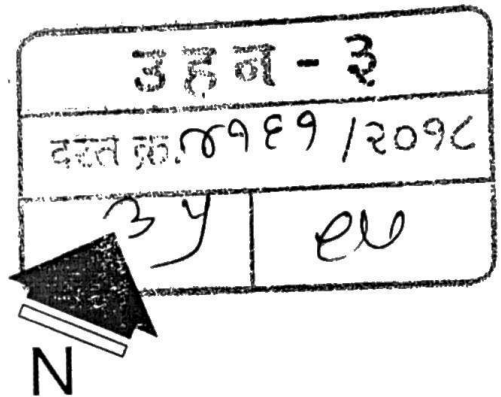 उहन - ३
दस्त क्र. ४१६१ /२०१८
३५
N